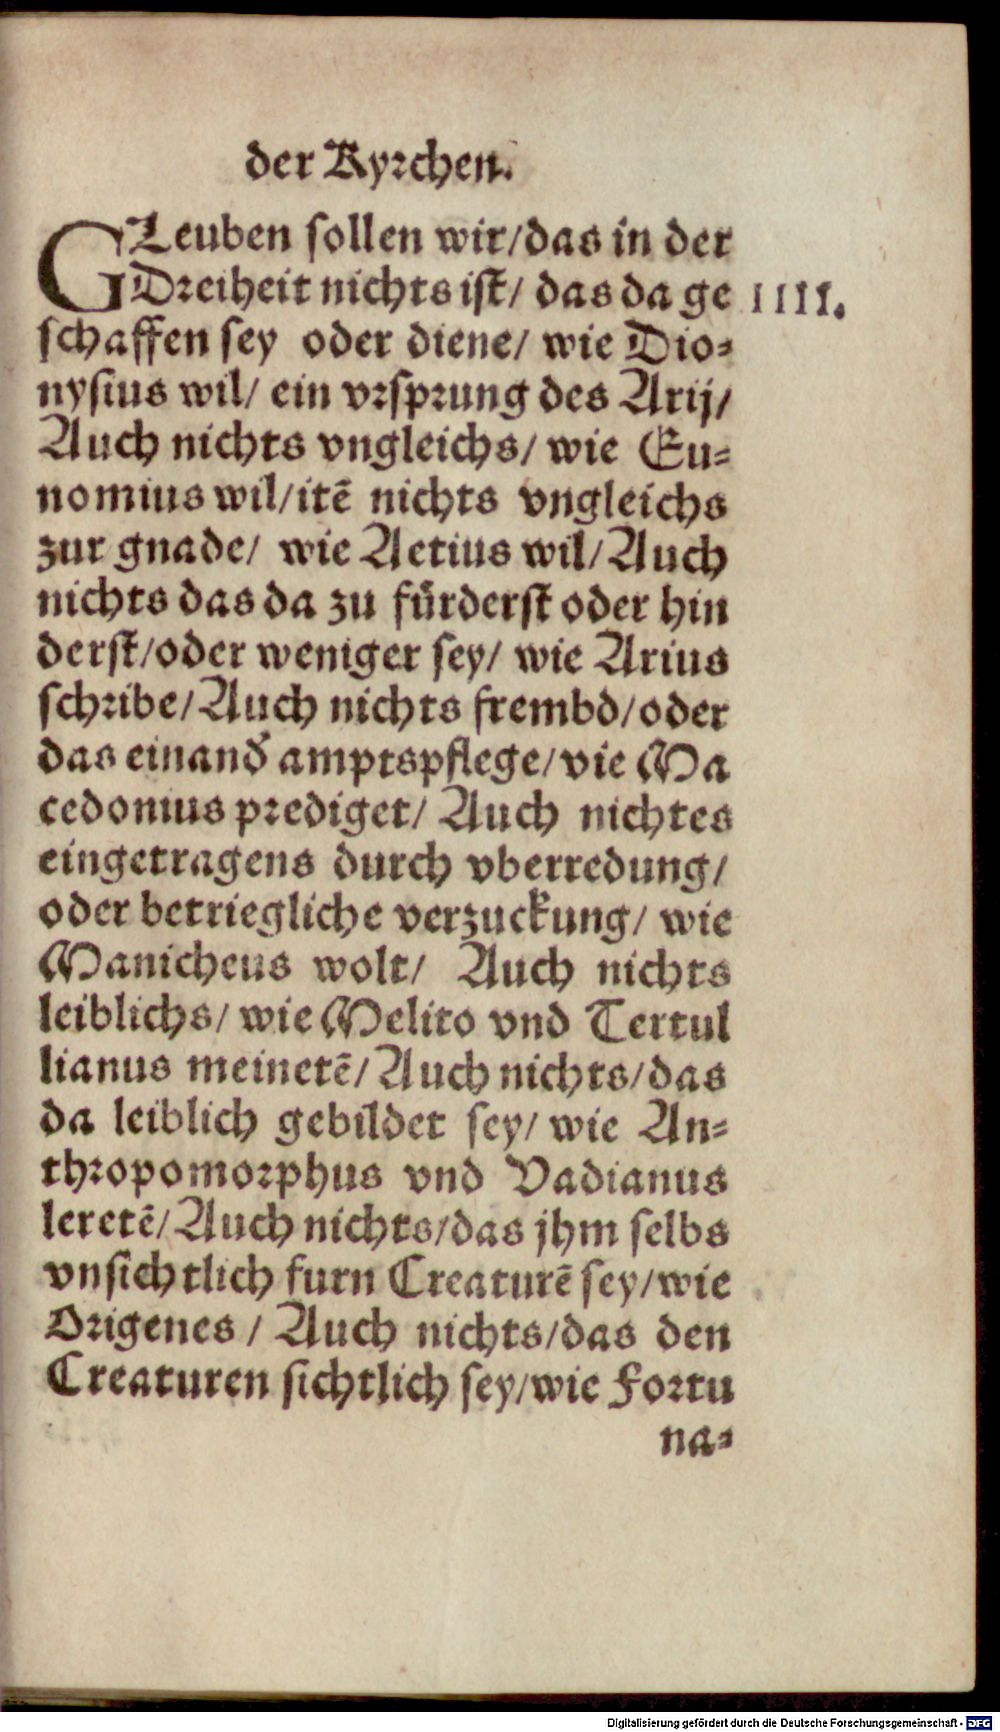 der Kyrchen.
GLeuben sollen wir/das in der
Dreiheit nichts ist/ das da ge
IIII.
schaffen sey oder diene/ wie Dio-
nysius wil/ ein vrsprung des Arij/
Auch nichts vngleichs/ wie Eu-
nomius wil/itē nichts vngleichs
zur gnade/ wie Aetius wil/Auch
nichts das da zu fürderst oder hin
derst/oder weniger sey/ wie Arius
schribe/Auch nichts frembd/oder
das einand̄ amptspflege/vie Ma
cedonius prediget/ Auch nichtes
eingetragens durch vberredung/
oder betriegliche verzuckung/ wie
Manicheus wolt/ Auch nichts
leiblichs/ wie Melito vnd Tertul
lianus meinetē/Auch nichts/das
da leiblich gebildet sey/ wie An-
thropomorphus vnd Vadianus
leretē/Auch nichts/das jhm selbs
vnsichtlich furn Creaturē sey/wie
Origenes / Auch nichts/das den
Creaturen sichtlich sey/wie Fortu
na-
Digitalisierung gefördert durch die Deutsche Forschungsgemeinschaft - DFG